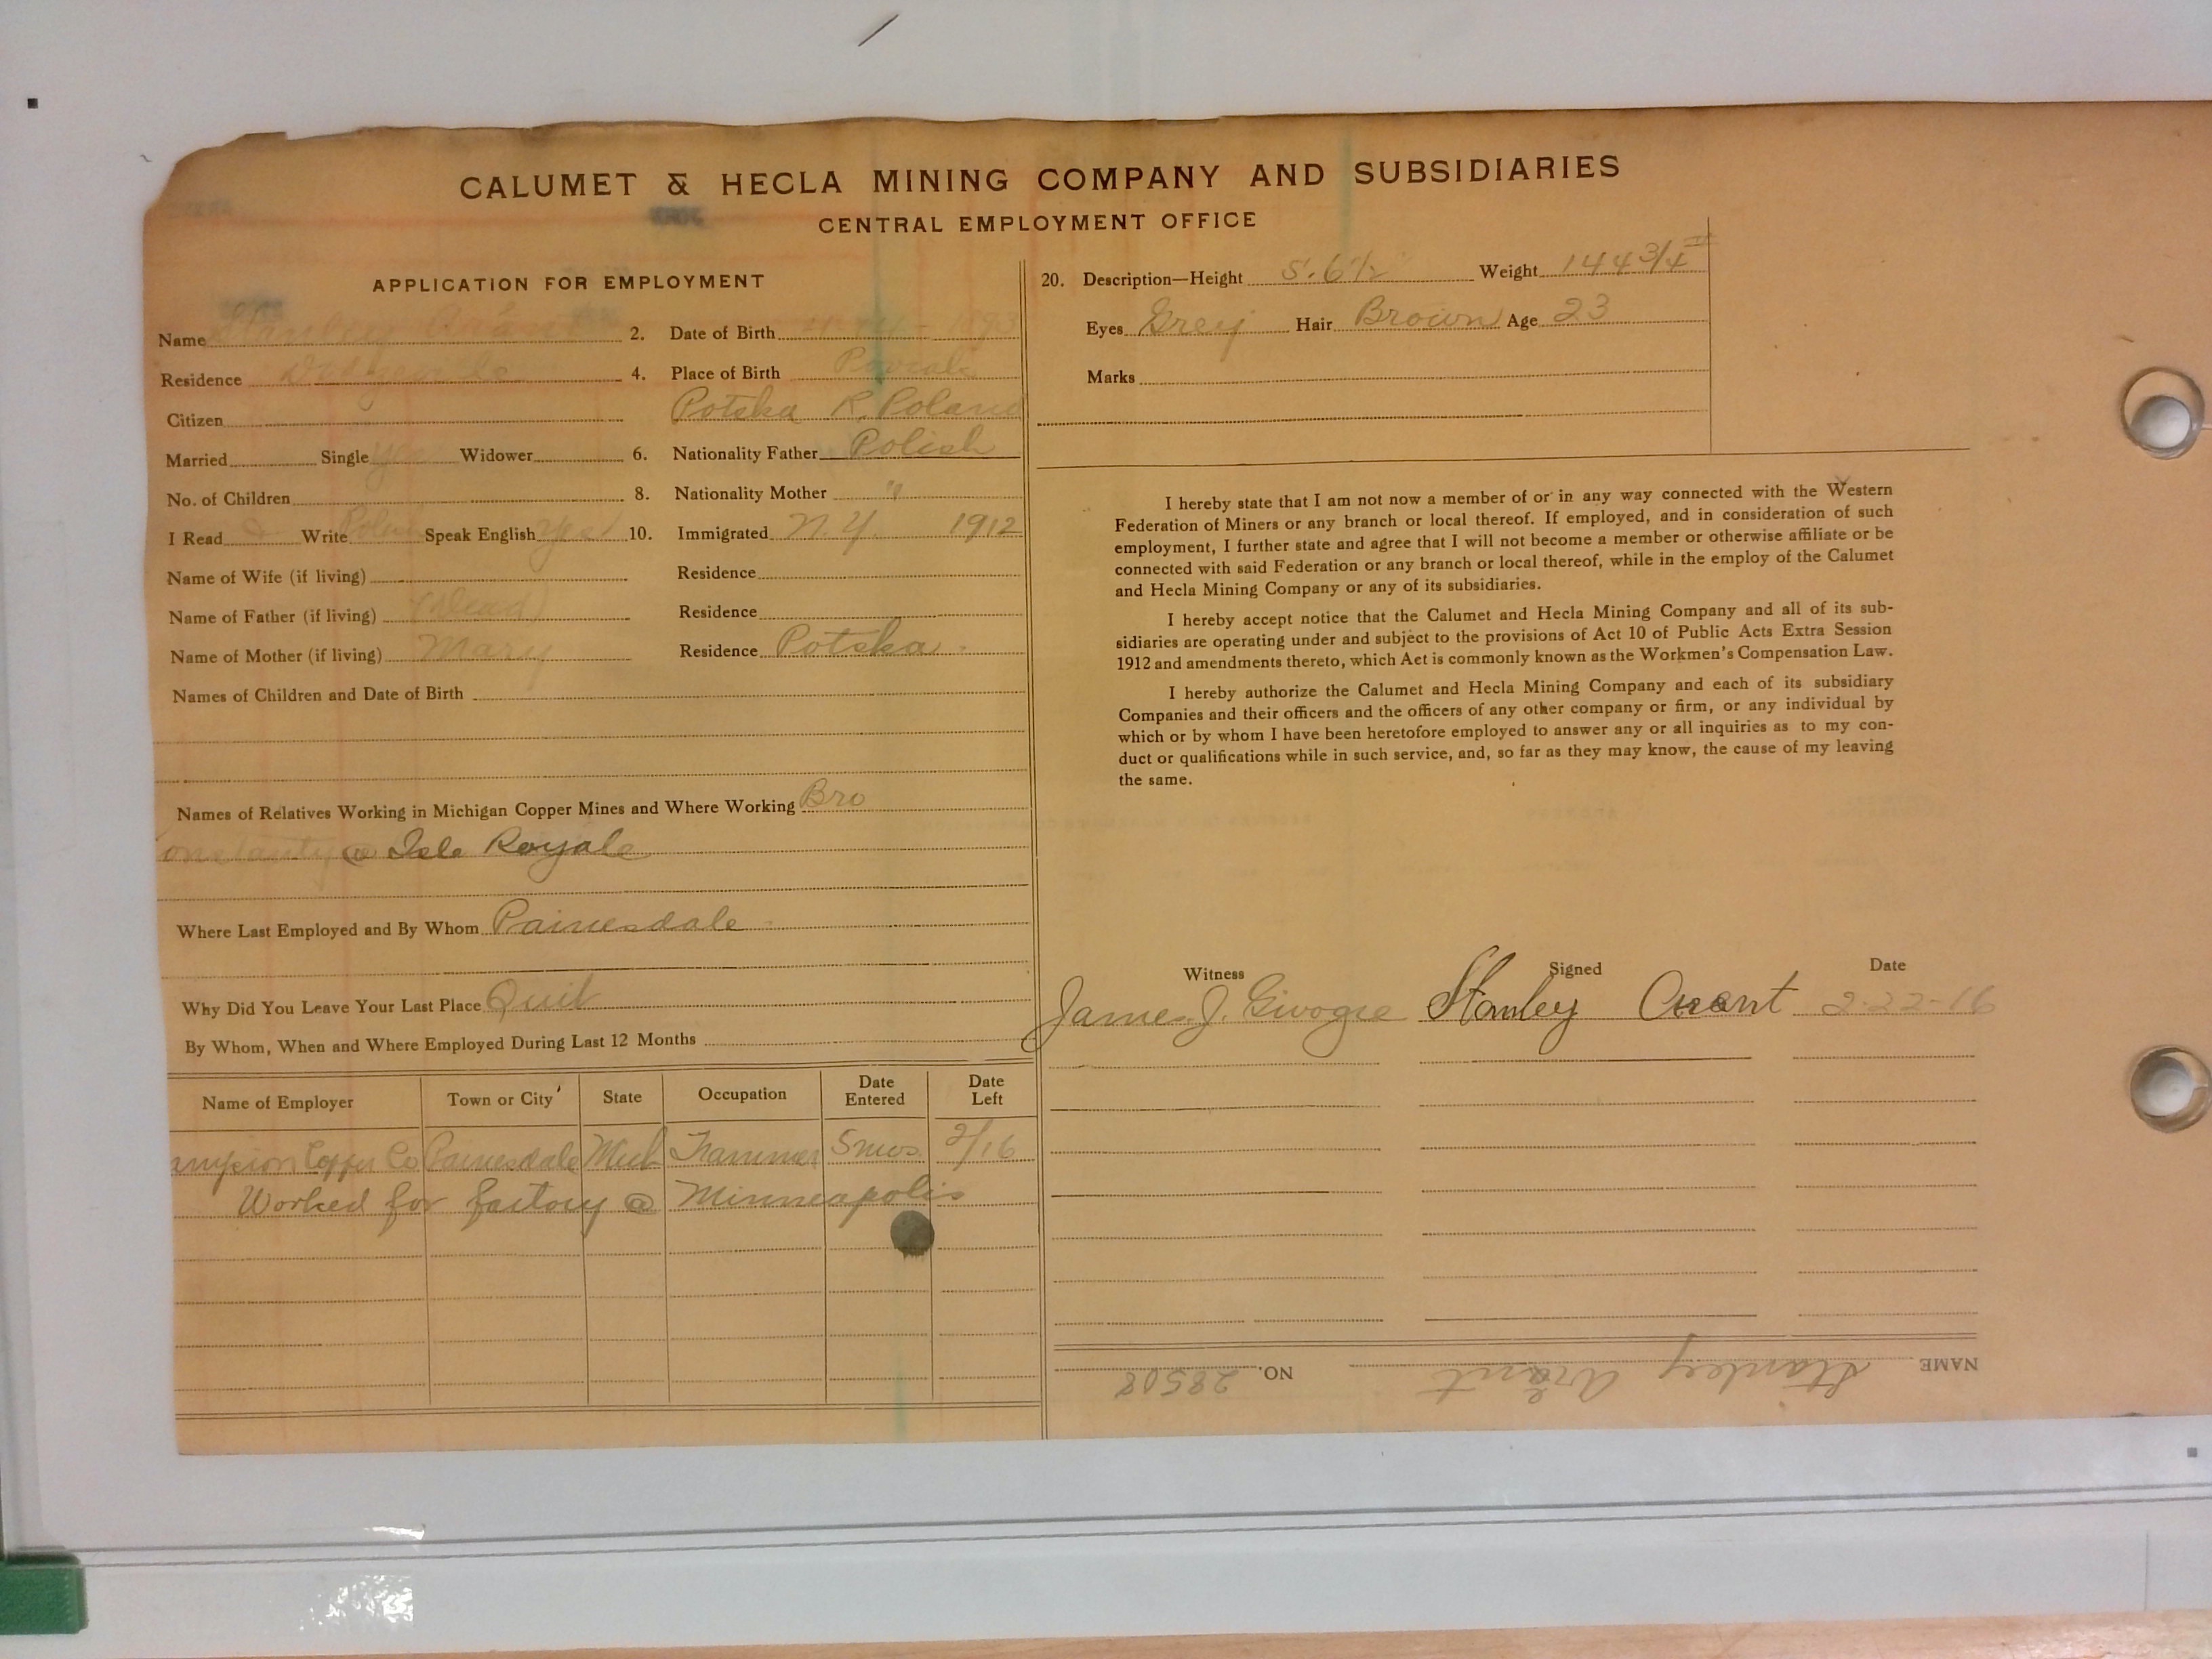 CALUMET & HECLA MINING COMPANY AND SUBSIDIARIES
CENTRAL EMPLOYMENT OFFICE
APPLICATION FOR EMPLOYMENT
Name Stanley
2. Date of Birth
Residence
4. Place of Birth
Citizen Potska R. Poland
Married Single yes Widower 6. Nationality Father Polish
No. of Children 8. Nationality Mother "
I Read Write Speak English yes 10. Immigrated N.Y. 1912
Name of Wife (if living) Residence
Name of Father (if living) (Dead) Residence
Name of Mother (if living) Mary Residence Potska
Names of Children and Date of Birth
Names of Relatives Working in Michigan Copper Mines and Where Working Bro
@ Isle Royale
Where Last Employed and By Whom Painesdale
Why Did You Leave Your Last Place Quit
By Whom, When and Where Employed During Last 12 Months
Name of Employer Town or City State Occupation Date Entered Date Left
ampion Copper Co Painesdale Mich Trammer 5 mos. 2/16
Worked for factory @ Minneapolis
20. Description—Height 5.6½ Weight 144 3/4
Eyes Grey Hair Brown Age 23
Marks
I hereby state that I am not now a member of or in any way connected with the Western
Federation of Miners or any branch or local thereof. If employed, and in consideration of such
employment, I further state and agree that I will not become a member or otherwise affiliate or be
connected with said Federation or any branch or local thereof, while in the employ of the Calumet
and Hecla Mining Company or any of its subsidiaries.
I hereby accept notice that the Calumet and Hecla Mining Company and all of its sub-
sidiaries are operating under and subject to the provisions of Act 10 of Public Acts Extra Session
1912 and amendments thereto, which Act is commonly known as the Workmen's Compensation Law.
I hereby authorize the Calumet and Hecla Mining Company and each of its subsidiary
Companies and their officers and the officers of any other company or firm, or any individual by
which or by whom I have been heretofore employed to answer any or all inquiries as to my con-
duct or qualifications while in such service, and, so far as they may know, the cause of my leaving
the same.
Witness Signed Date
James J. Stanley 2-22-16
NAME Stanley Arant NO. 28508